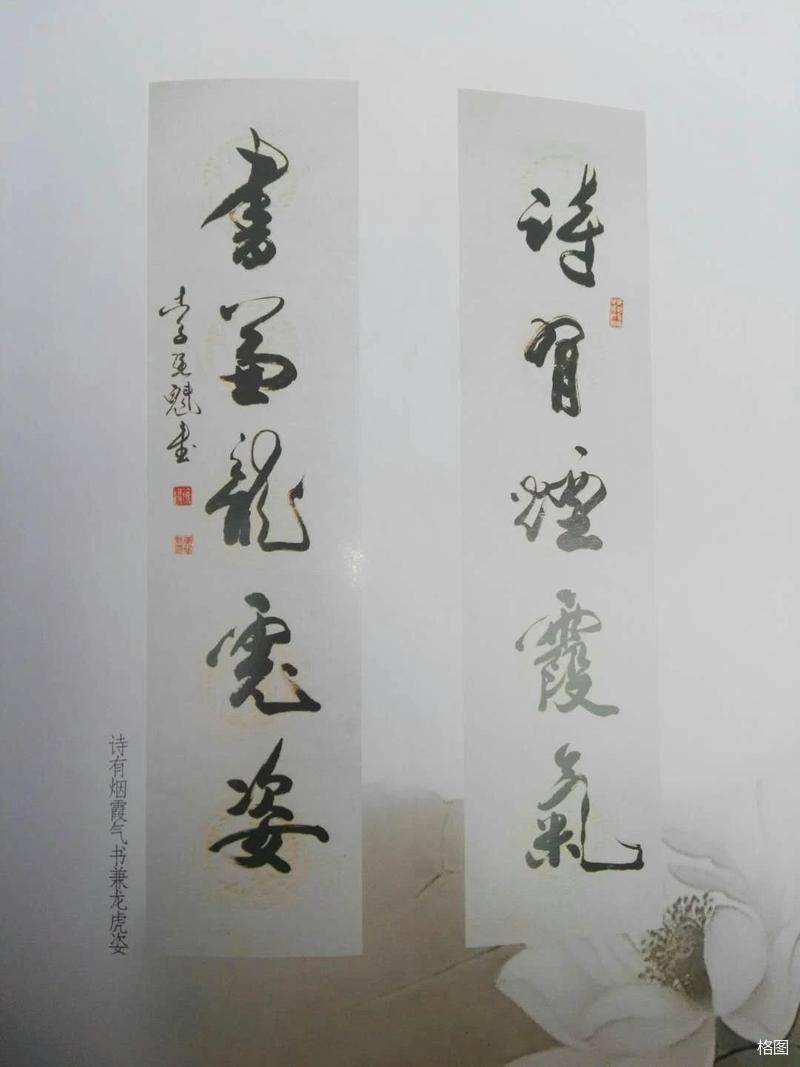 詩有煙霞氣
書兼龍虎姿
诗有烟霞气书兼龙虎姿
格图